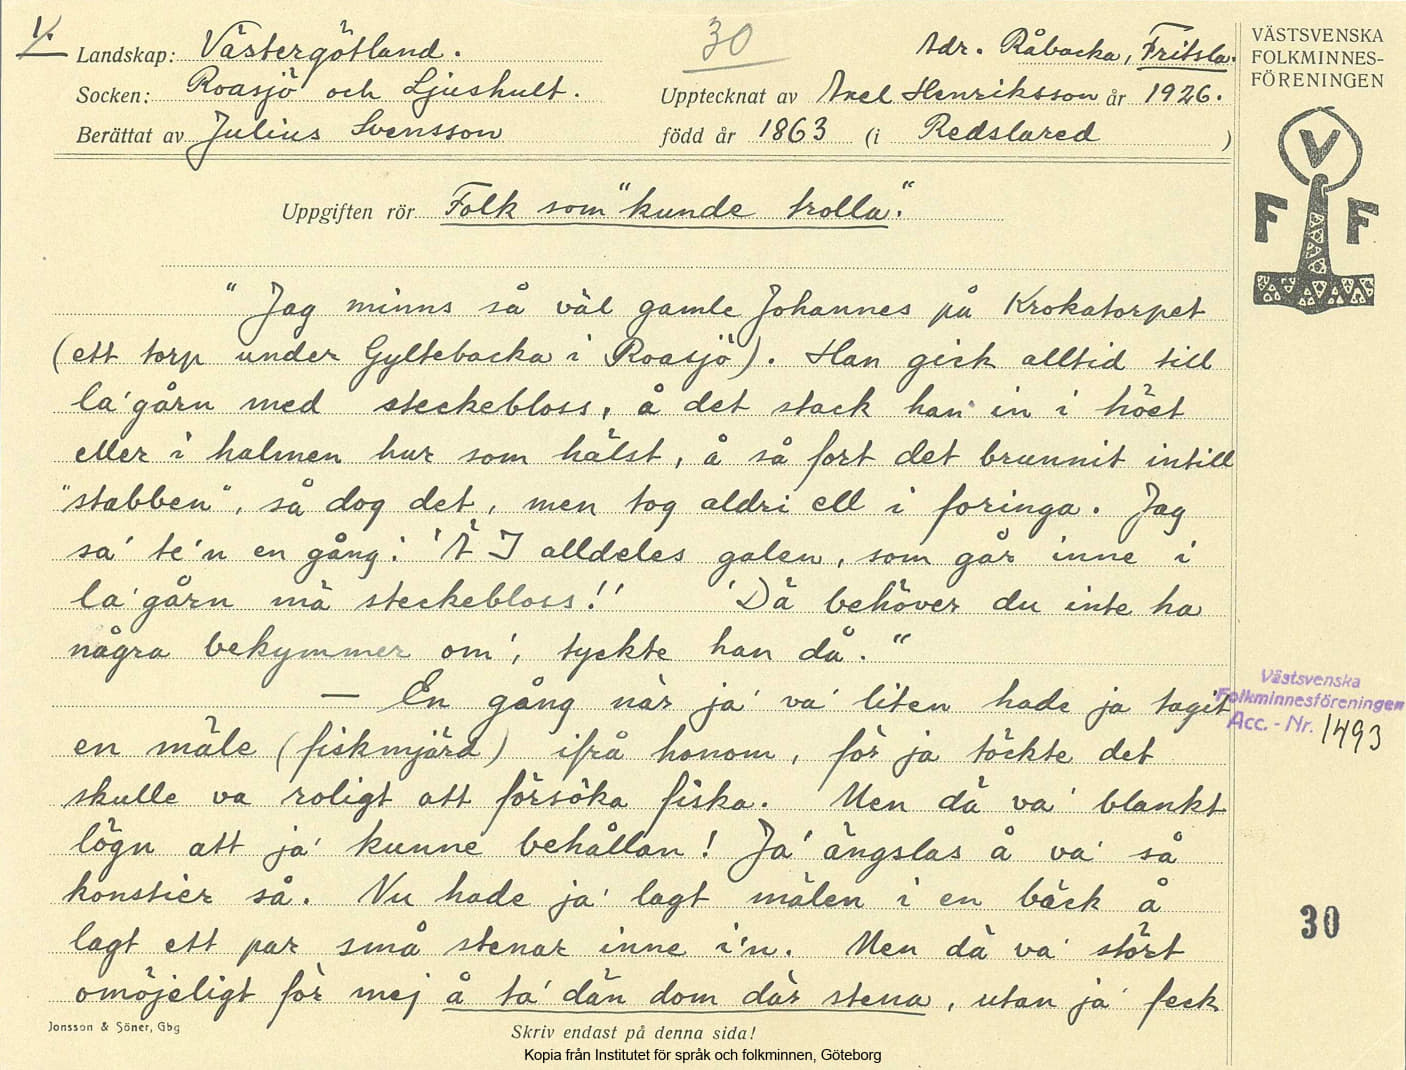 1.
Landskap: Västergötland.
30
Adr. Råbacka, Fritsla.
Socken: Roasjö och Ljushult.
Upptecknat av Axel Henriksson år 1926.
Berättat av Julius Svensson
född år 1863 (i Redslared )
VÄSTSVENSKA
FOLKMINNES-
FÖRENINGEN
V
F F
Uppgiften rör Folk som "kunde trolla."
"Jag minns så väl gamle Johannes på Krokatorpet
(ett torp under Gyltebacka i Roasjö). Han gick alltid till
la'gårn med steckebloss, å det stack han in i höet
eller i halmen hur som hälst, å så fort det brunnit intill
"stabben", så dog det, men tog aldri ell i foringa. Jag
sa' te'n en gång: 'Ä I alldeles galen, som går inne i
la'gårn mä steckebloss!' 'Dä behöver du inte ha
några bekymmer om', tyckte han då."
— En gång när ja' va' liten hade ja tagit
en mäle (fiskmjärd) ifrå honom, för ja töckte det
skulle va roligt att försöka fiska. Men dä va' blankt
lögn att ja' kunne behållan! Ja' ängslas å va' så
konstier så. Nu hade ja' lagt mälen i en bäck å
lagt ett par små stenar inne i'n. Men dä va' stört
omöjeligt för mej å ta' dän dom där stena, utan ja' feck
Västsvenska
Folkminnesföreningen
Acc.-Nr. 1493
30
Jonsson & Söner, Gbg
Skriv endast på denna sida!
Kopia från Institutet för språk och folkminnen, Göteborg